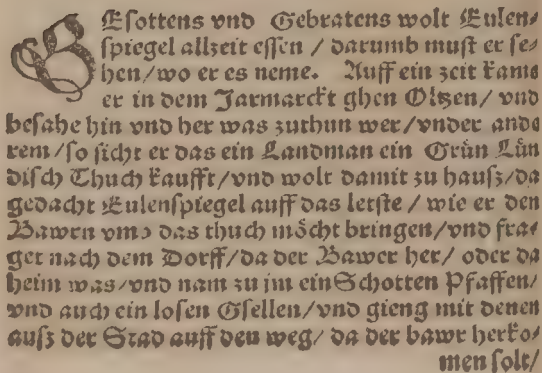 GEsottens vnd Gebratens wolt Eulen⸗
spiegel allzeit essen / darumb must er se⸗
hen/wo er es neme. Auff ein zeit kame
er in dem Jarmarckt ghen Oltzen/ vnd
besahe hin vnd her was zuthun wer/vnder ande
rem/so sicht er das ein Landman ein Grün Lün
disch Thuch kaufft/vnd wolt damit zu hausz/da
gedacht Eulenspiegel auff das letste / wie er den
Bawrn vmb das thuch möcht bringen/vnd fra⸗
get nach dem Dorff/da der Bawer her/ oder da
heim was/vnd nam zu jm ein Schotten Pfaffen/
vnd auch ein losen Gsellen/vnd gieng mit denen
ausz der Stad auff den weg/ da der bawr herko⸗
men solt/